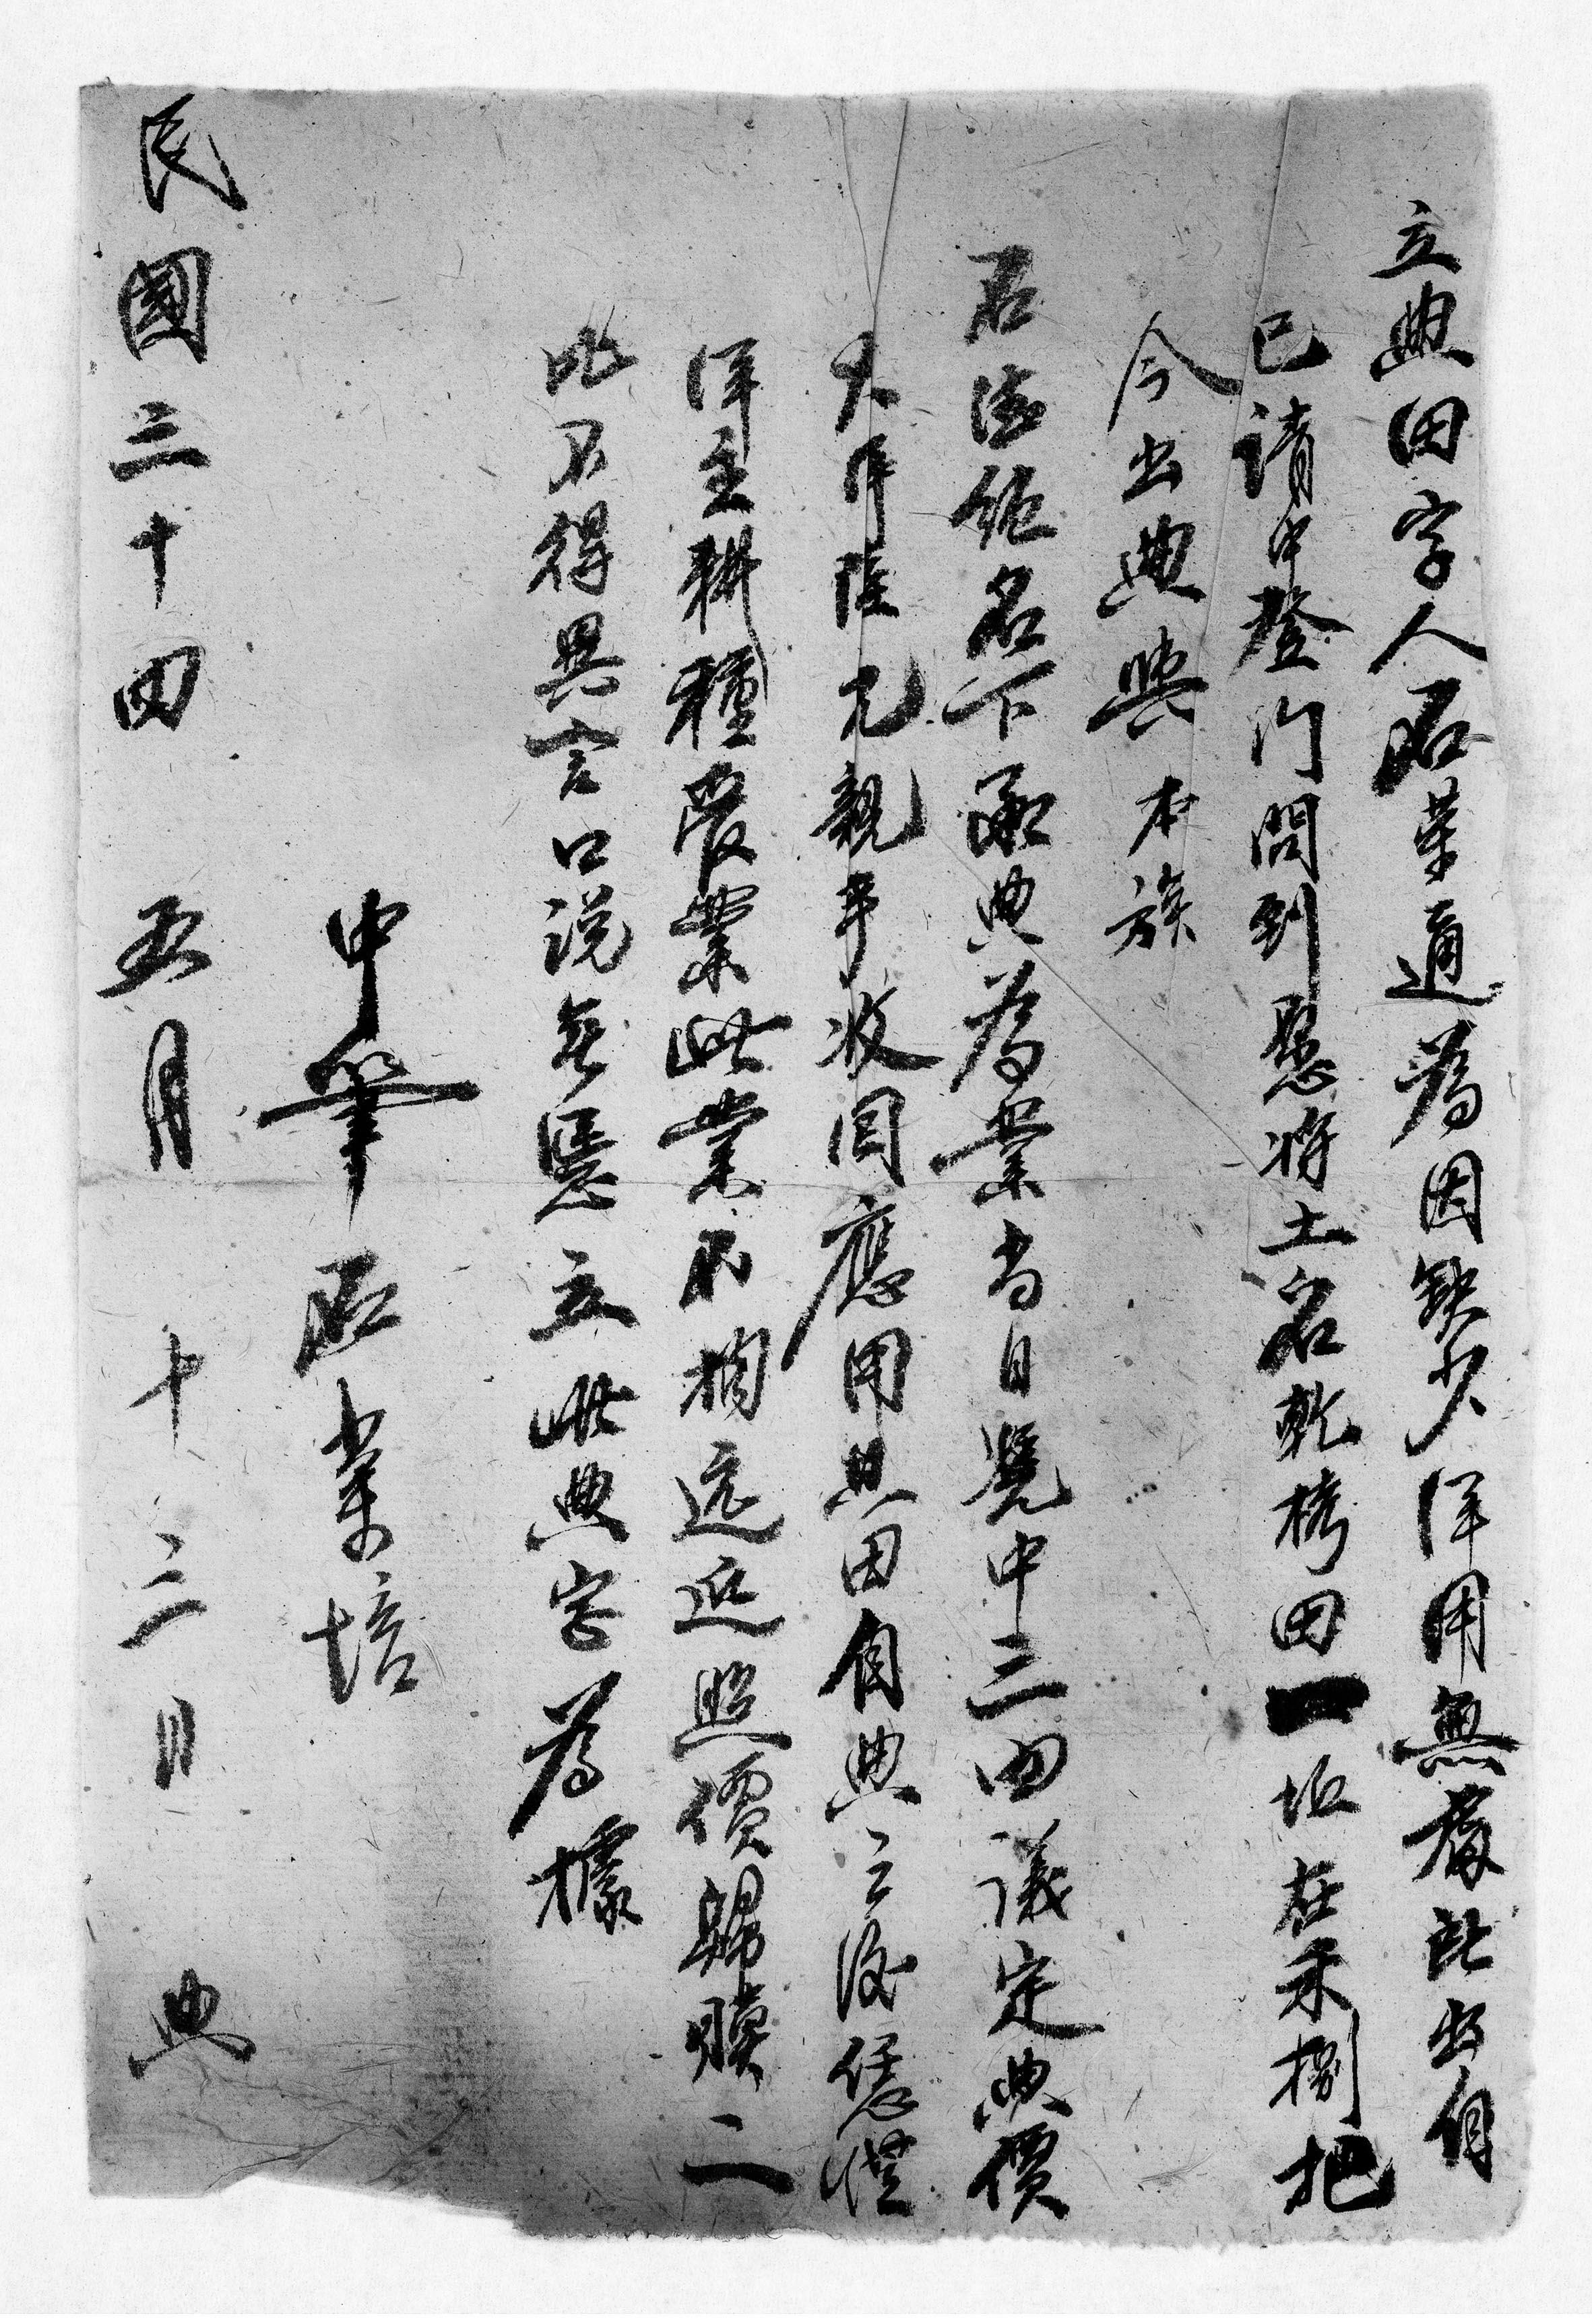 立典田字人石業適為因缺少洋用無處所出自
己請中登門問到懇將土名乾塝田一坵在禾捌把
今出典與本族
石德鉅名下承典為業当日憑中三面議定典價
大洋陸元親手收回應用其田自典之後恁憑
洋主耕種管業此業不拘远近照價歸贖二
比不得異言口說無憑立此典字為據
中筆石業培
民國三十四 五月十三日 典